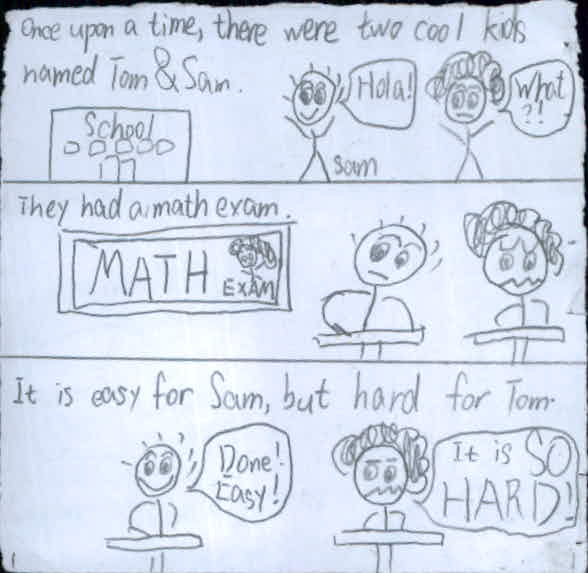 Once upon a time, there were two cool kids
named Tom & Sam.
School
Hola!
What
?!
Sam
They had a math exam.
MATH
EXAM
It is easy for Sam, but hard for Tom.
Done!
Easy!
It is SO
HARD!